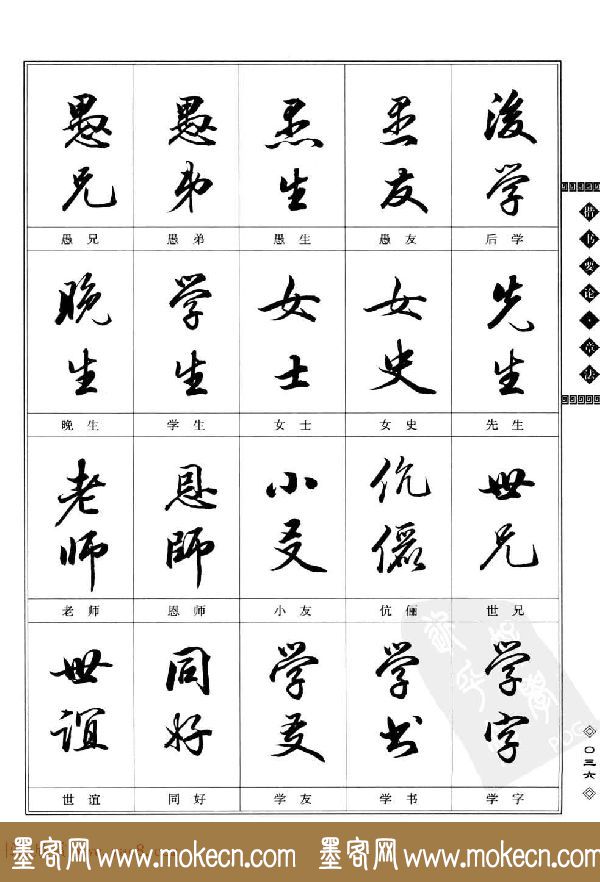 愚兄 愚弟 愚生 愚友 後学
愚兄 愚弟 愚生 愚友 后学
晚生 学生 女士 女史 先生
晚生 学生 女士 女史 先生
老师 恩師 小友 伉儷 世兄
老师 恩师 小友 伉俪 世兄
世谊 同好 学友 学书 学字
世谊 同好 学友 学书 学字
楷书要论·章法
〇三六
墨客网 www.mokecn.com 墨客网 www.mokecn.com